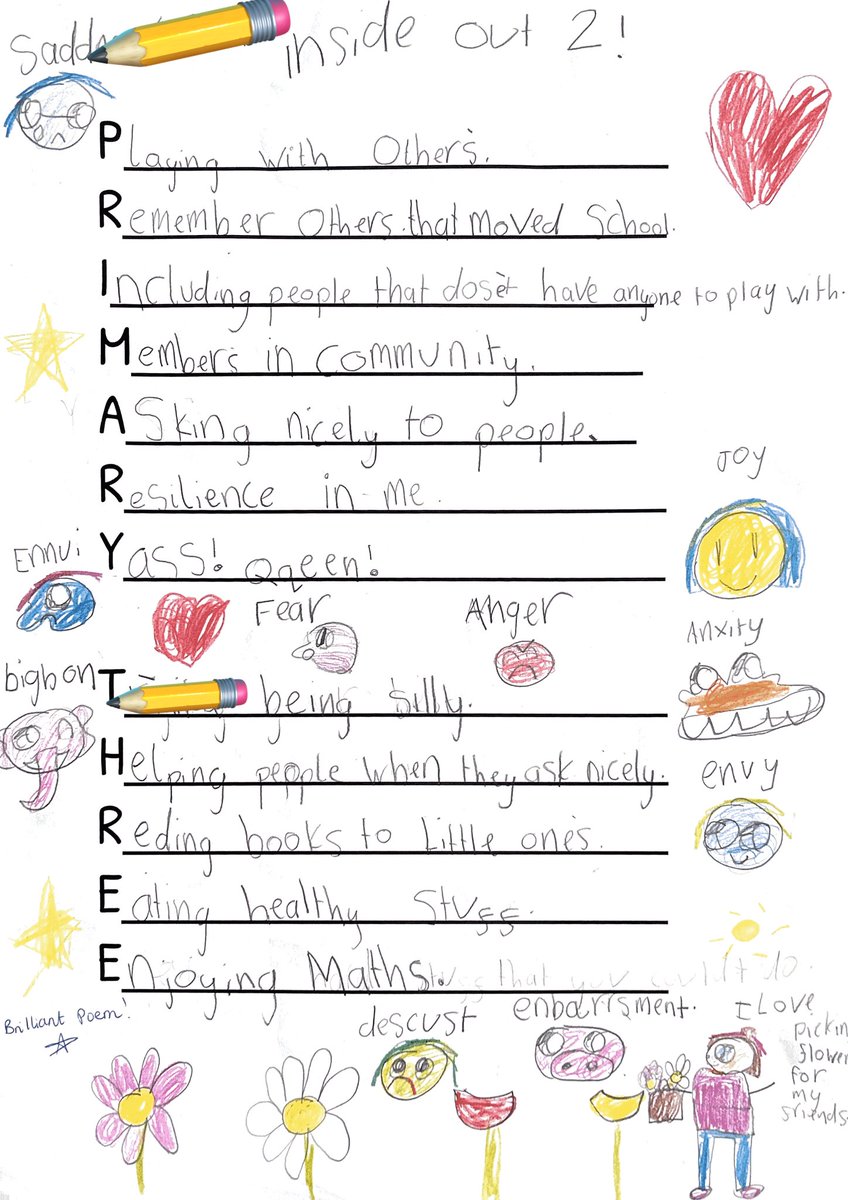 inside out 2!
Playing with Others.
Remember Others. that moved School.
Including people that dosèt have anyone to play with.
Members in community.
Asking nicely to people.
Resilience in me.
Joy
Yass! Qqeen!
Ennui
Fear
Anger
Anxity
bigbon
being silly.
Helping people when they ask nicely.
envy
Reding books to Little one's.
Eating healthy stuff.
Enjoying Maths.
Brilliant Poem!
descust
enbarrisment.
I Love
pickin
flower
for
my
friends